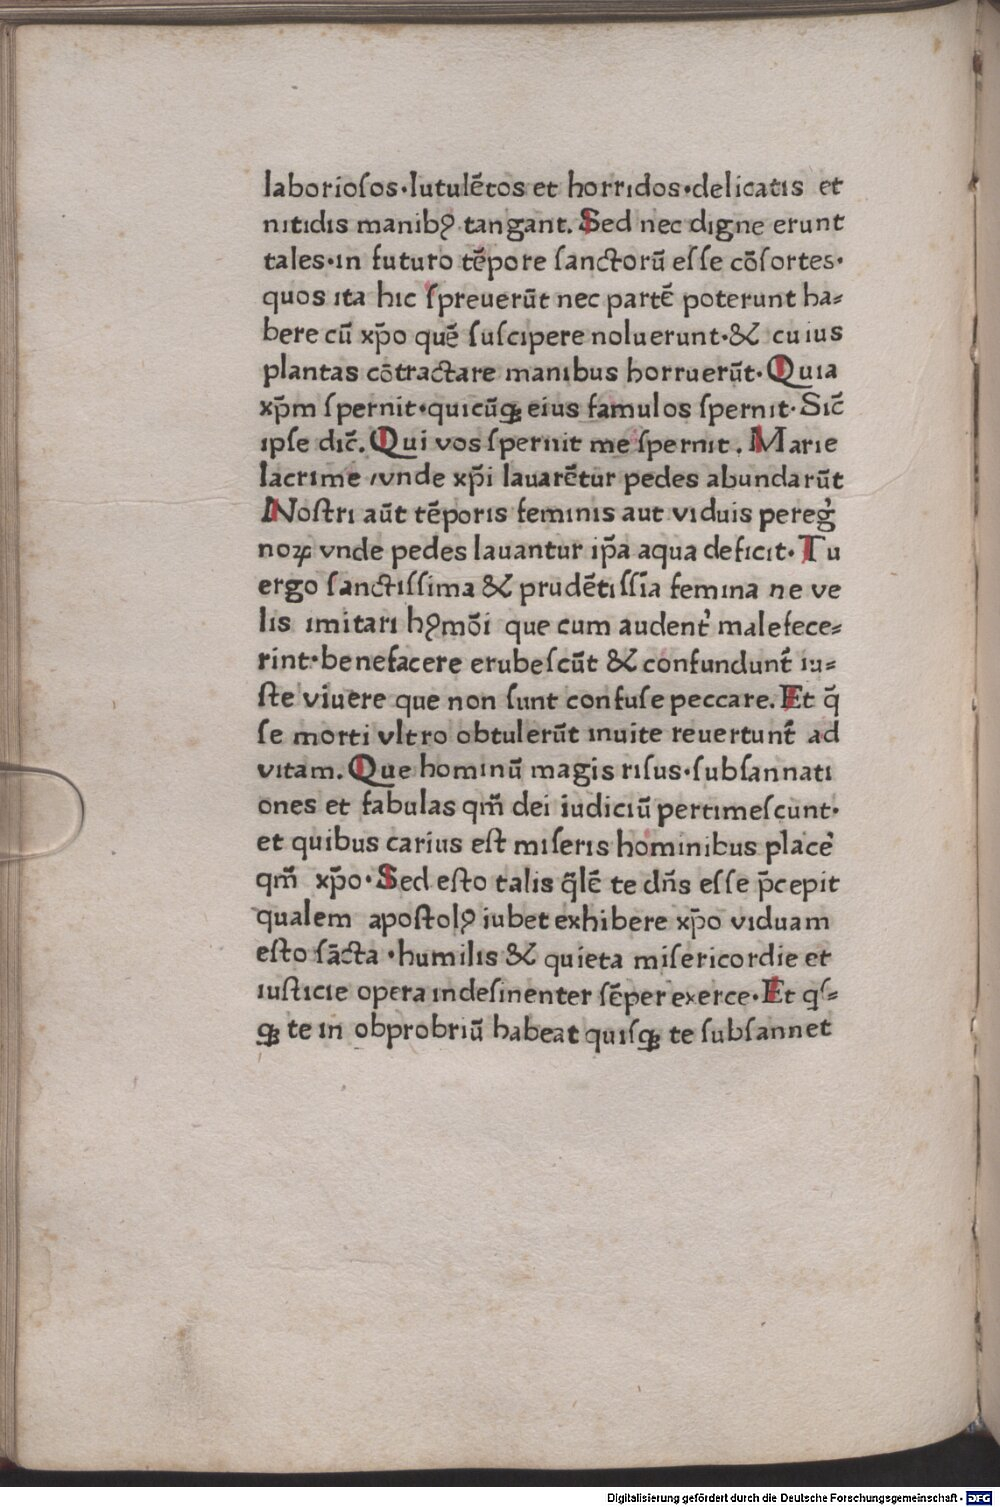 laborioſos·lutulētos et horridos·delicatis et
nitidis manibꝰ tangant. Sed nec digne erunt
tales·in futuro tēpore ſanctorū eſſe cōſortes·
quos ita hic ſpreuerūt nec partē poterunt ha⸗
bere cū xp̄o quē ſuſcipere noluerunt·& cuius
plantas cōtractare manibus horruerūt·Quia
xp̄m ſpernit·quicūqꝫ eius famulos ſpernit·Sic̄
ipſe dic̄. Qui vos ſpernit me ſpernit. Marie
lacrime /vnde xp̄i lauarētur pedes abundarūt
Noſtri aūt tēporis feminis aut viduis peregͥ
noꝝ vnde pedes lauantur ip̄a aqua deficit·Tu
ergo ſanctiſſima & prudētiſſīa femina ne ve
lis imitari hꝰmōi que cum audentᷣ malefece⸗
rint·benefacere erubeſcūt & confundunt᷑ iu⸗
ſte viuere que non ſunt confuſe peccare. Et q̄
ſe morti vltro obtulerūt inuite reuertunt᷑ ad
vitam. Que hominū magis riſus·ſubſannati
ones et fabulas qm̄ dei iudiciū pertimeſcunt·
et quibus carius eſt miſeris hominibus placeꝰ
qm̄ xp̄o·Sed eſto talis q̄lē te dn̄s eſſe p̄cepit
qualem apoſtolꝰ iubet exhibere xp̄o viduam
eſto ſācta ·humilis & quieta miſericordie et
iuſticie opera indeſinenter ſēper exerce·Et qͥſ⸗
qꝫ te in obprobriū habeat quiſqꝫ te ſubſannet
Digitalisierung gefördert durch die Deutsche Forschungsgemeinschaft - DFG